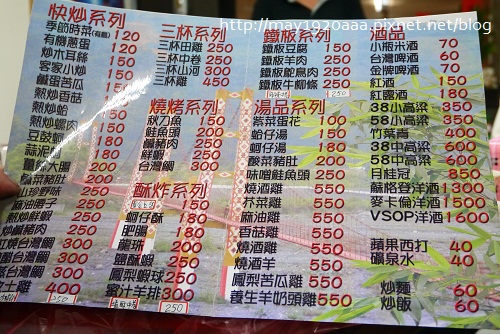 http://may1920aaa.pixnet.net/blog
快炒系列
季節時菜(有機) 120
有機蕃茄 120
炒木耳絲 150
客家小炒 150
鹹蛋苦瓜 150
熱炒香菇 150
熱炒蛤 150
熱炒螺肉 150
180
180
180
200
200
山珍野味 200
麻油腰子 250
熱炒鮮蝦 250
紅燒台灣鯛 300
台灣鯛 300
台灣鯛 300
土雞 400
250
三杯系列
三杯田雞 250
三杯中卷 250
三杯山河 300
三杯雞 450
燒烤系列
秋刀魚 150
鮭魚頭 200
鹹豬肉 180
鮮蝦 180
台灣鯛 300
酥炸系列
蚵仔酥 180
肥腸 180
龍珠 200
鹽酥蝦 250
鳳梨蝦球 250
蜜汁羊排 300
250
鐵板系列
鐵板豆腐 150
鐵板羊肉 250
鐵板鴕鳥肉 250
鐵板牛柳條 250
250
湯品系列
紫菜蛋花 100
蛤仔湯 150
蚵仔湯 150
酸菜豬肚 200
味噌鮭魚頭 250
燒酒雞 550
芥菜雞 550
麻油雞 550
香菇雞 550
燒酒雞 550
燒酒羊 550
鳳梨苦瓜雞 550
養生羊奶頭雞 550
酒品
小瓶米酒 70
台灣啤酒 60
金牌啤酒 70
紅酒 150
紅露酒 180
38小高粱 350
竹葉青 400
38中高粱 600
58中高粱 600
月桂冠 850
蘇格登洋酒 1300
麥卡倫洋酒 1500
VSOP洋酒 1600
蘋果西打 40
礦泉水 40
炒麵 60
炒飯 60